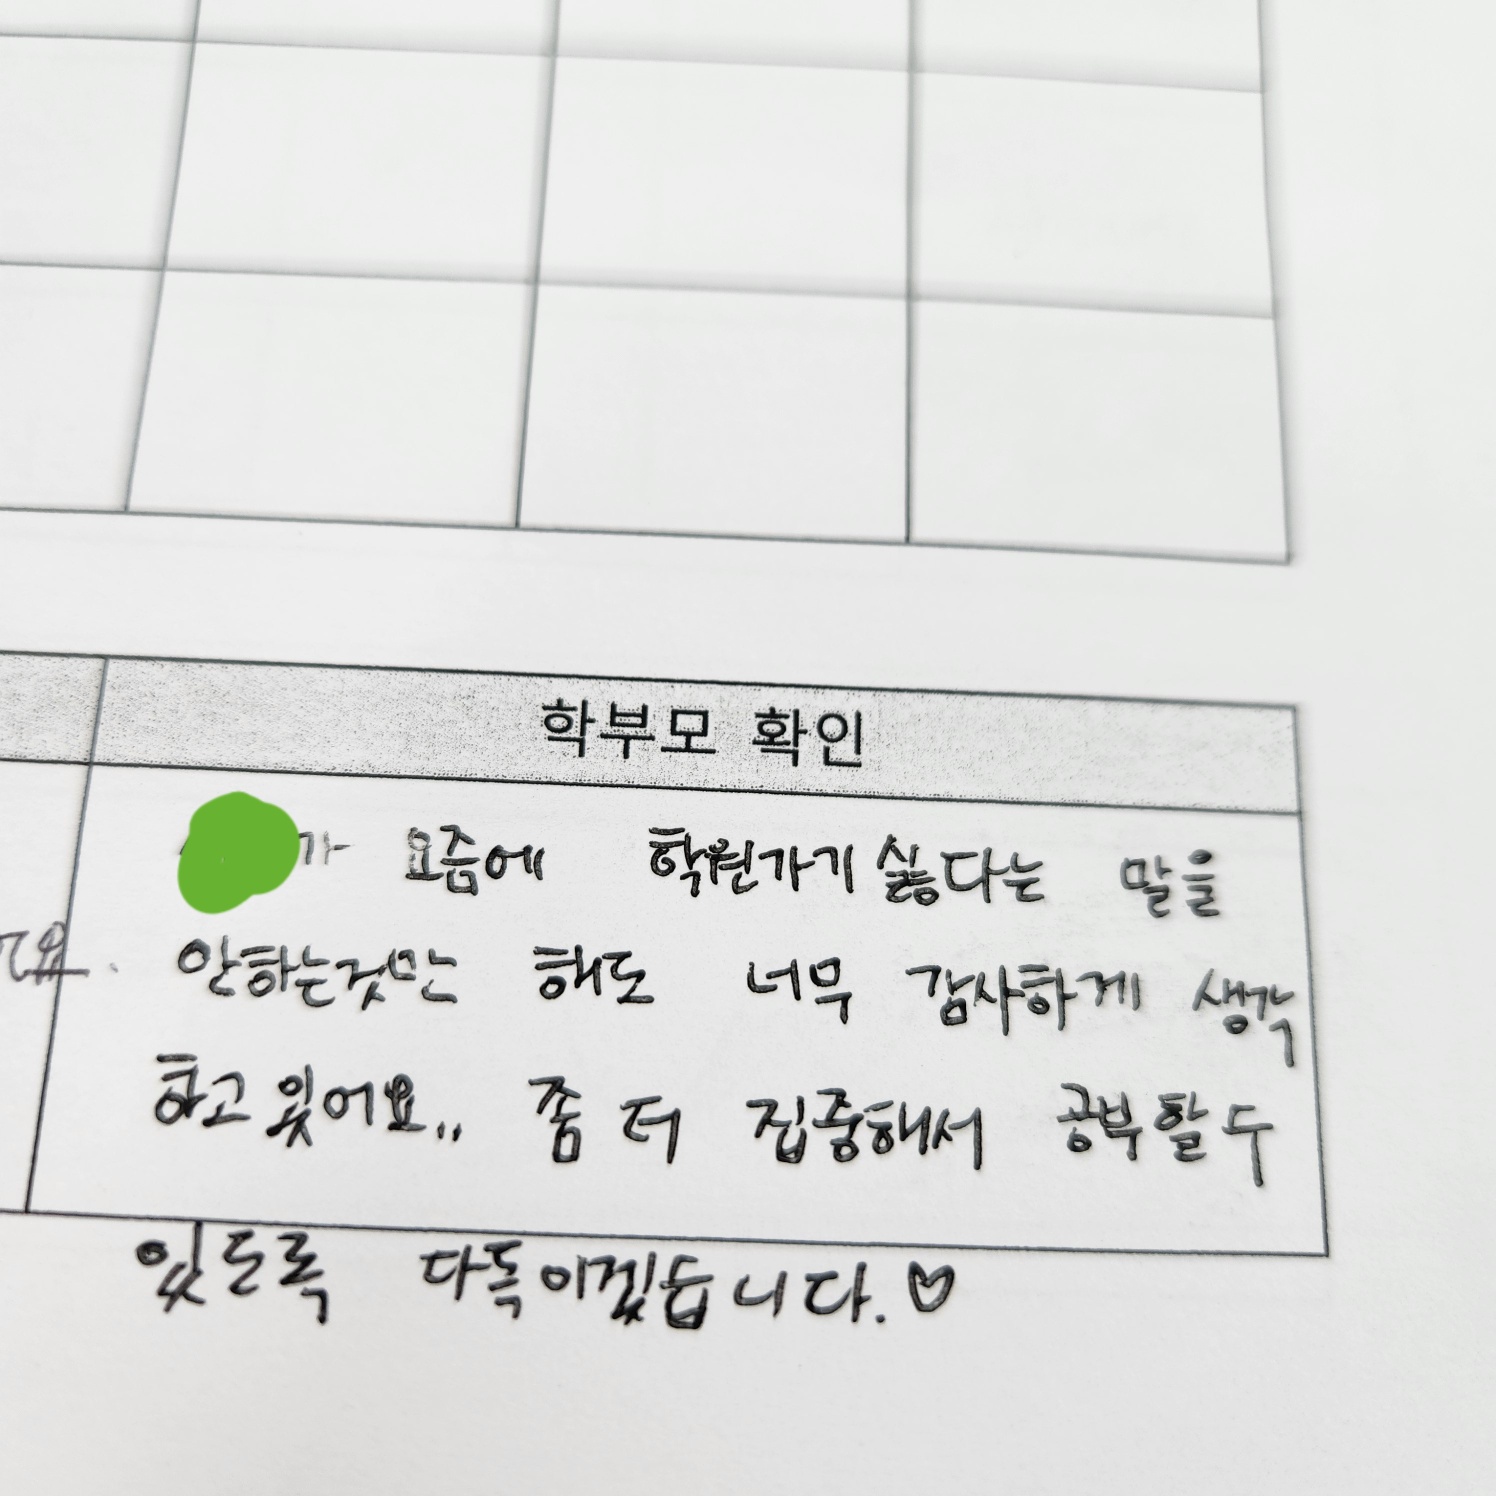 학부모 확인
가 요즘에 학원가기 싫다는 말을
요. 안하는것만 해도 너무 감사하게 생각
하고 있어요,, 좀 더 집중해서 공부할 수
있도록 다독이겠습니다.♡